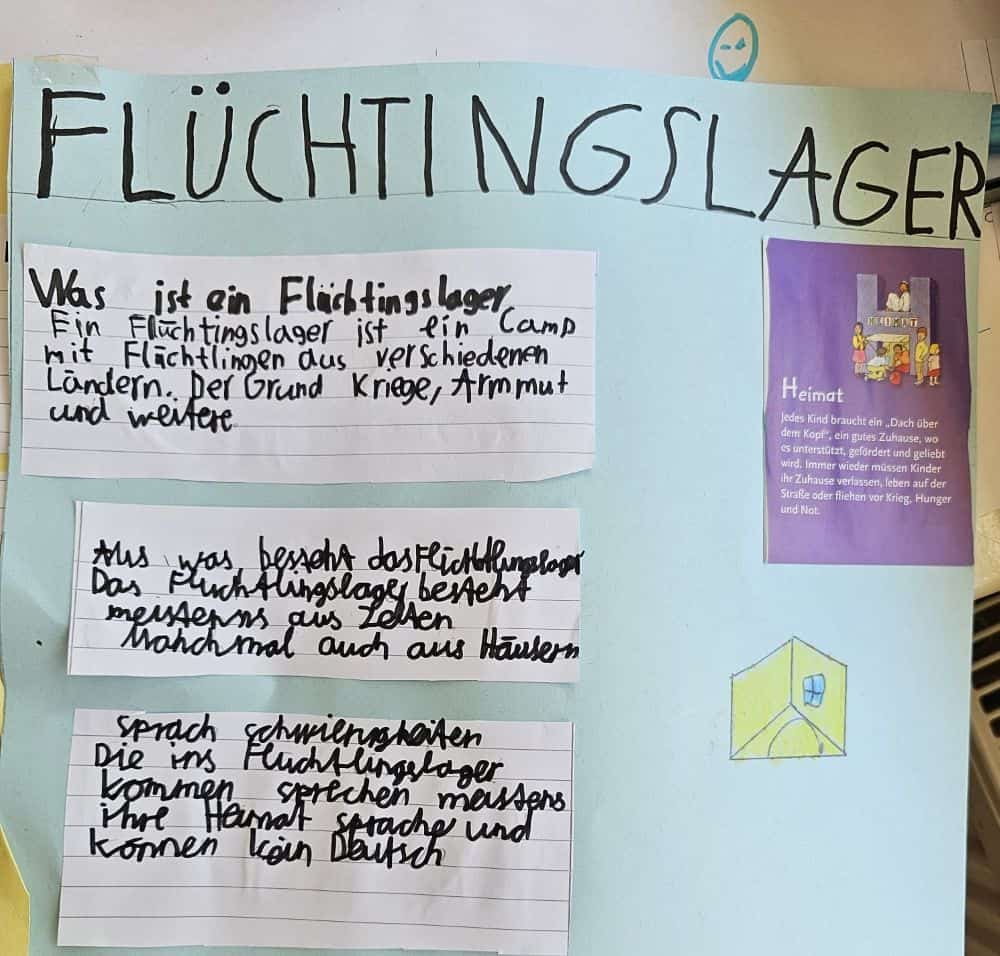 FLÜCHTINGSLAGER
Was ist ein Flüchtingslager
Ein Flüchtingslager ist ein Camp
mit Flüchtlingen aus verschiedenen
Ländern. Der Grund Kriege, Armmut
und weitere
HEIMAT
Heimat
Jedes Kind braucht ein „Dach über
dem Kopf“, ein gutes Zuhause, wo
es unterstützt, gefördert und geliebt
wird. Immer wieder müssen Kinder
ihr Zuhause verlassen, leben auf der
Straße oder fliehen vor Krieg, Hunger
und Not.
Aus was besteht das
Das Fluchtlingslager besteht
meistens aus Zelten
Manchmal auch aus Häusern
sprach schwierigkeiten
Die ins Fluchtlingslager
kommen sprechen meistens
ihre Heimat sprache und
können kein Deutsch